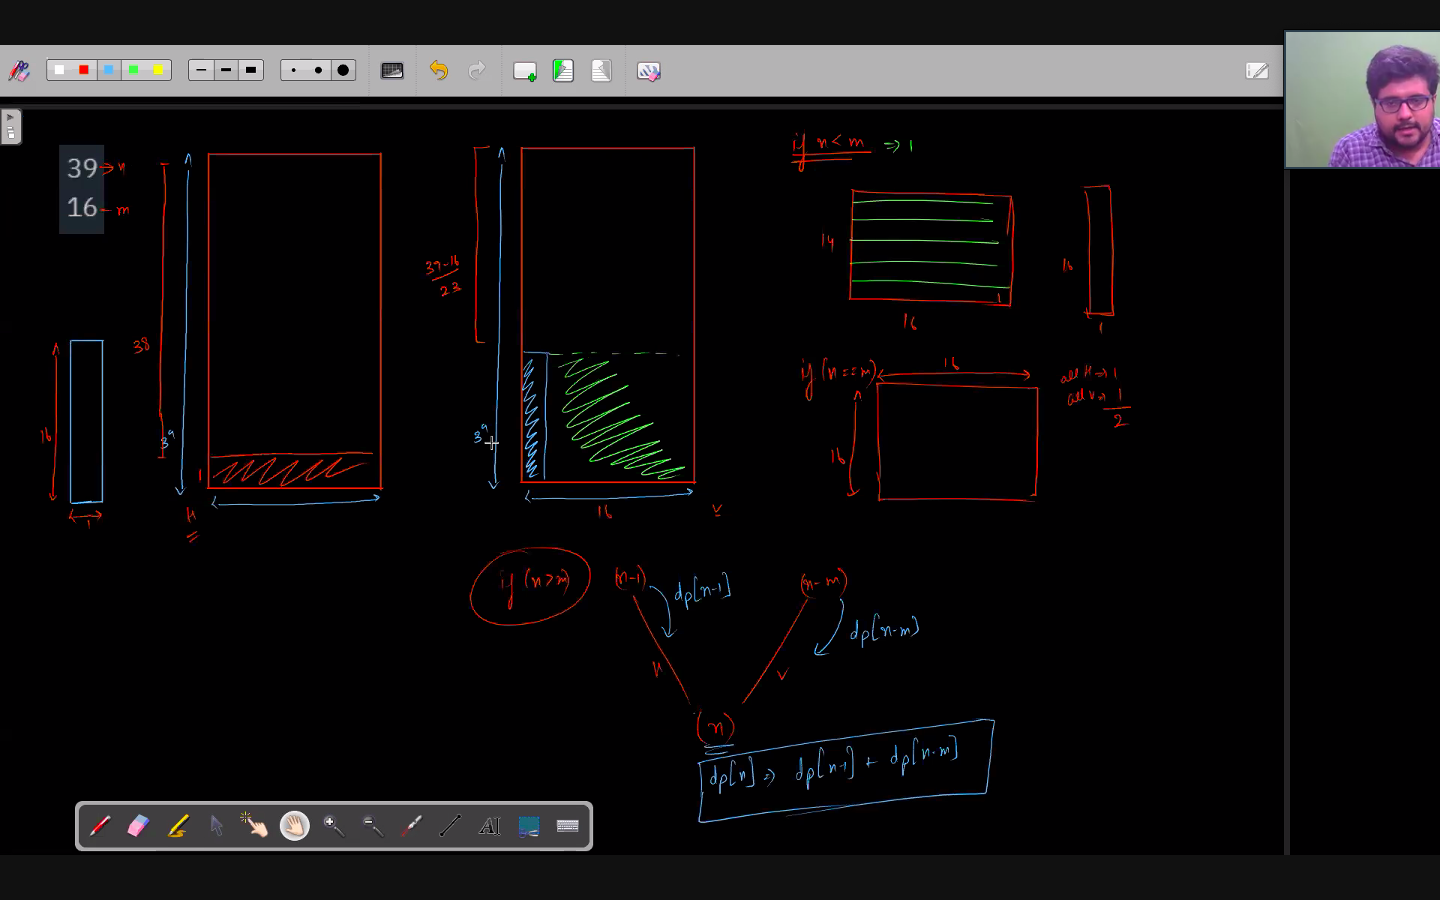 39 → n
16 - m
16
1
38
39
1
H
39-16
23
39
16
V
if n < m ⇒ 1
14
16
1
16
1
if (n == m)
16
16
all H ⇒ 1
all V ⇒ 1
2
if (n > m)
(n-1)
dp[n-1]
(n-m)
dp[n-m]
H
V
(n)
dp[n] ⇒ dp[n-1] + dp[n-m]
AI